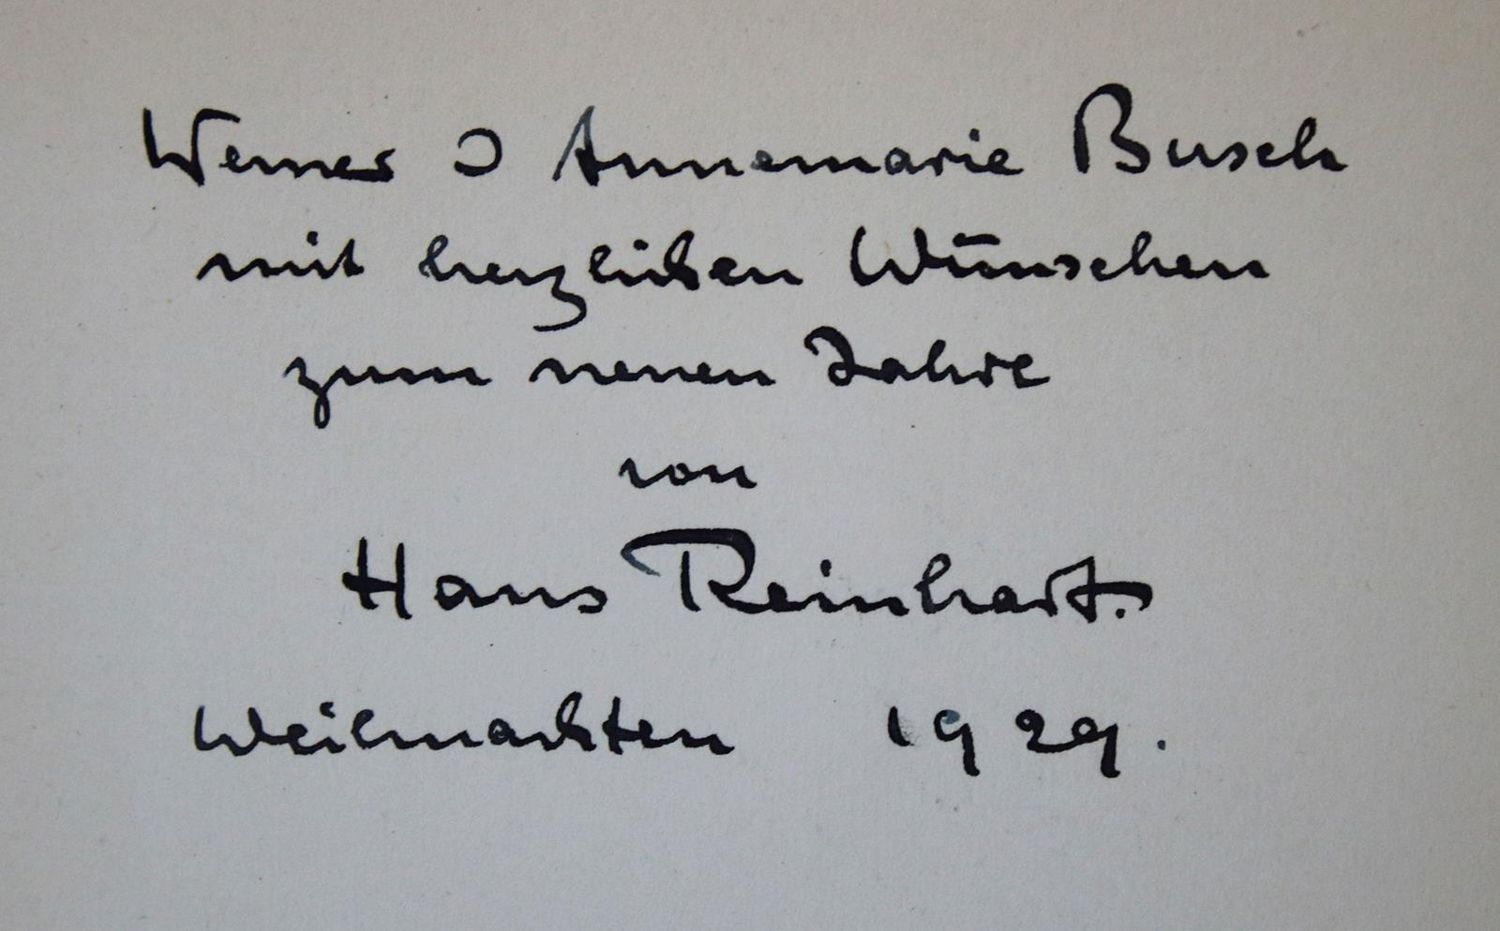 Werner & Annemarie Busch
mit herzlichen Wünschen
zum neuen Jahre
von
Hans Reinhart.
Weihnachten 1929.